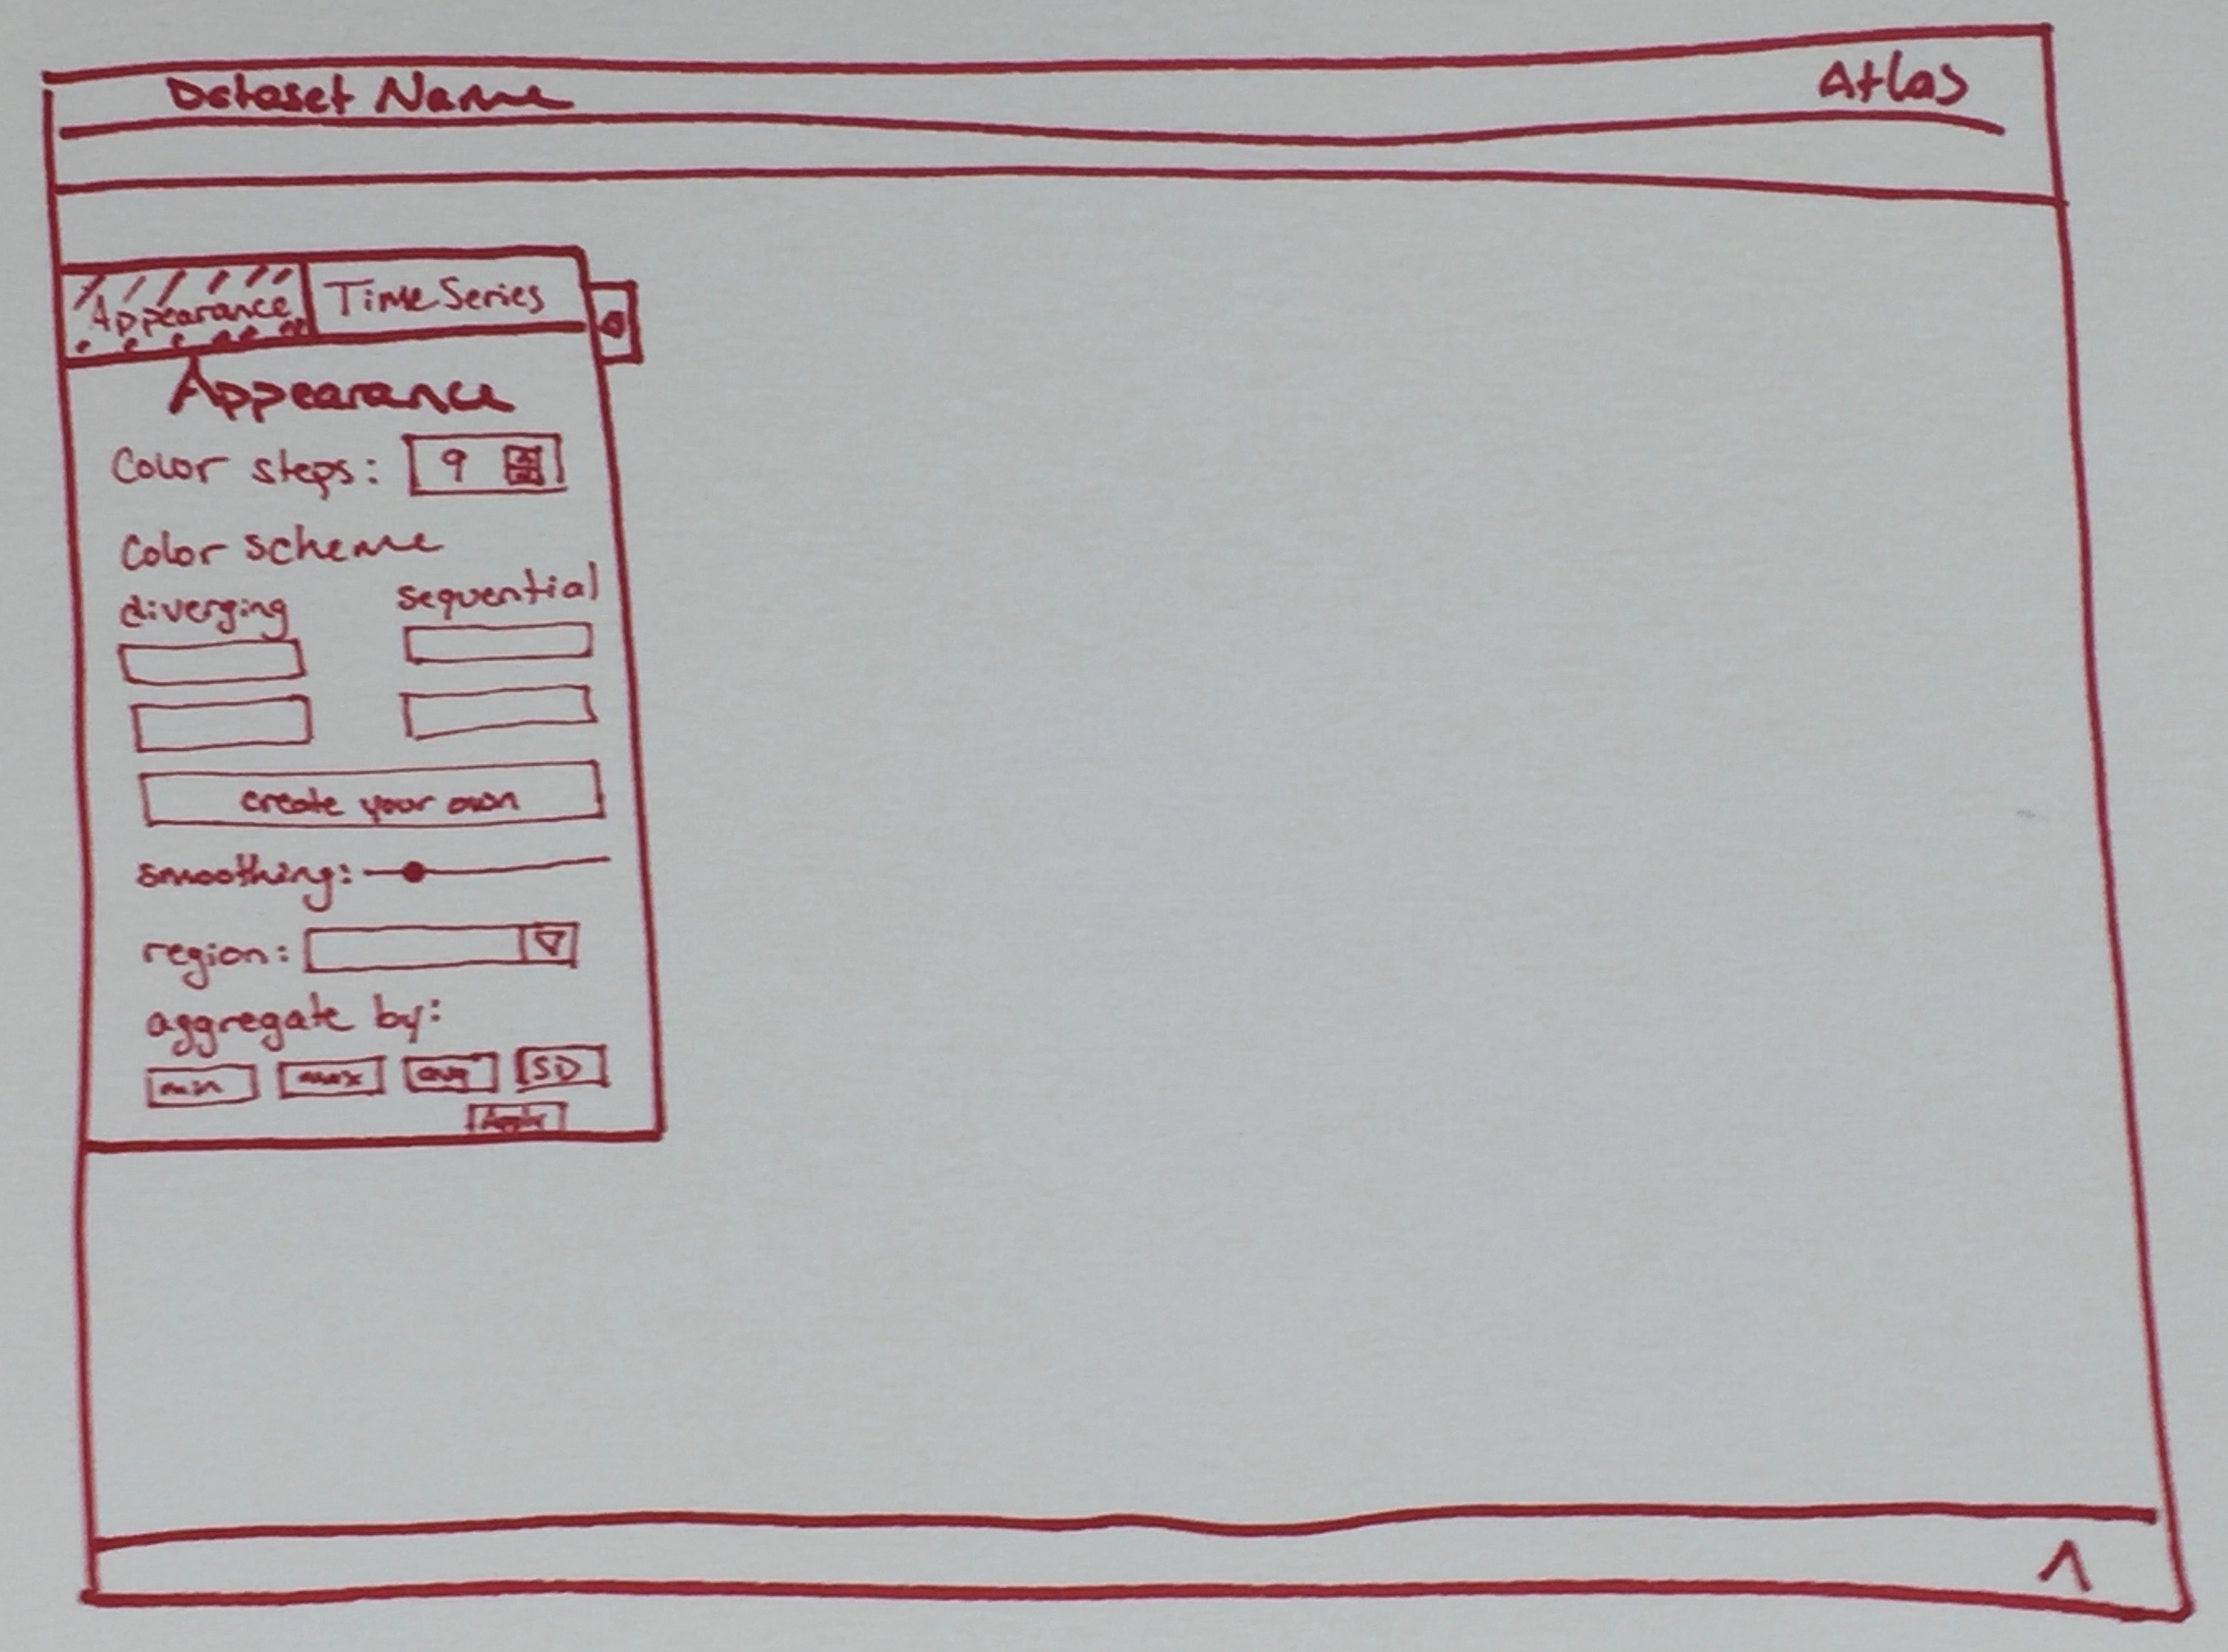 Dataset Name Atlas
Appearance Time Series
Appearance
Color steps: 9
Color scheme
diverging sequential
create your own
smoothing:
region:
aggregate by:
min max avg SD
Apply